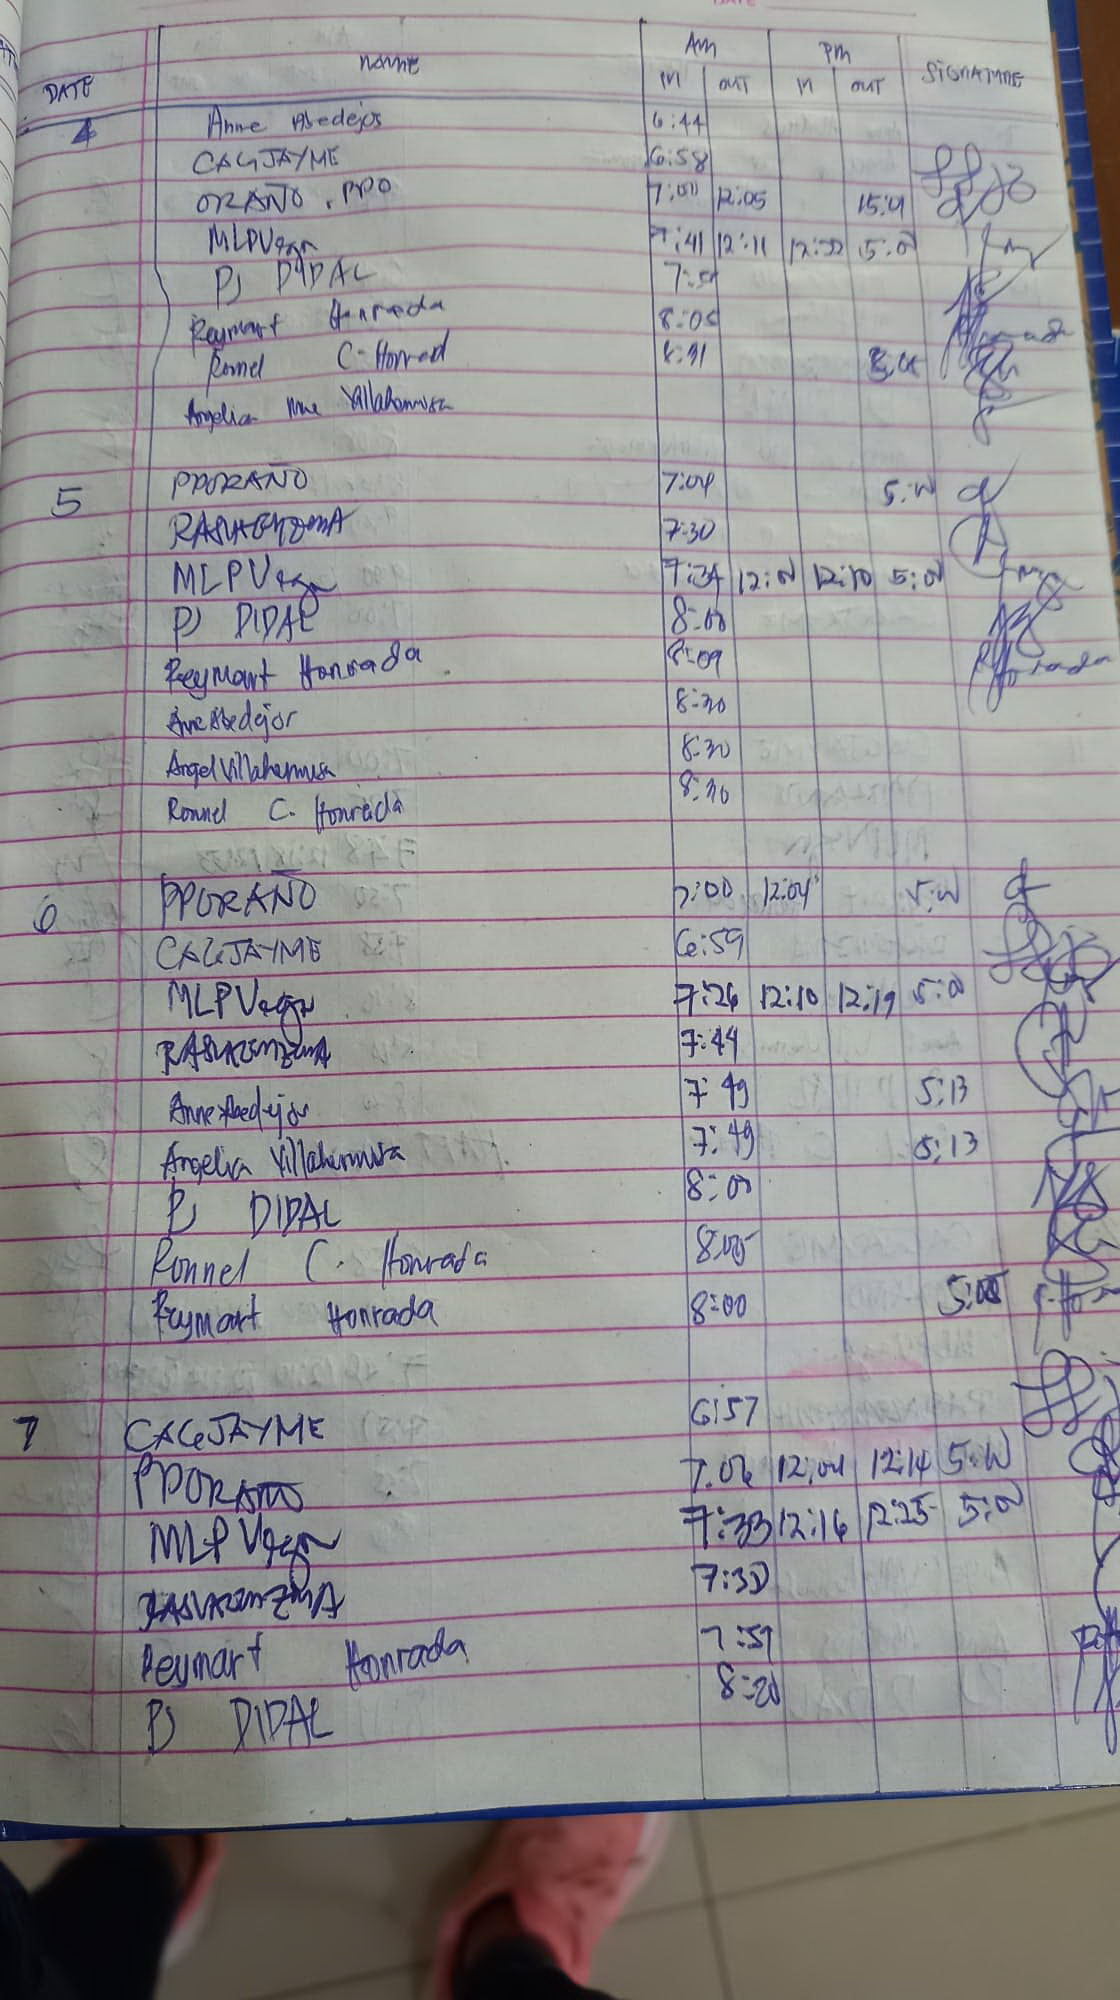 DATE
DATE NAME AM PM SIGNATURE
IN OUT IN OUT
4 Anne Abedejos 6:44
CAGJAYME 6:58
ORAÑO, PPO 7:00 12:05
MLPVega 7:41 12:11 12:22 5:01
PJ DIDAL
Reymart Honrada 8:05
Ronel C. Honrad 8:31
Angelica Mae Villahermosa
5 PPORAÑO 7:04
7:30
MLPVega 7:34 12:01 12:10 5:01
PJ DIDAL 8:00
Reymart Honrada 8:09
Anne Abedejos 8:30
Angel Villahermosa 8:30
Ronnel C. Honrada 8:30
6 PPORAÑO 7:00 12:04
CAGJAYME 6:59
MLPVega 7:26 12:10 12:19 5:01
7:44
Anne Abedejos 7:49 5:13
Angelica Villahermosa 7:49 5:13
PJ DIDAL 8:00
Ronnel C. Honrada 8:05
Reymart Honrada 8:00
7 CAGJAYME 6:57
PPORAÑO 7:06 12:04 12:14
MLPVega 7:33 12:16 12:25 5:01
7:30
Reymart Honrada 7:59
PJ DIDAL 8:20